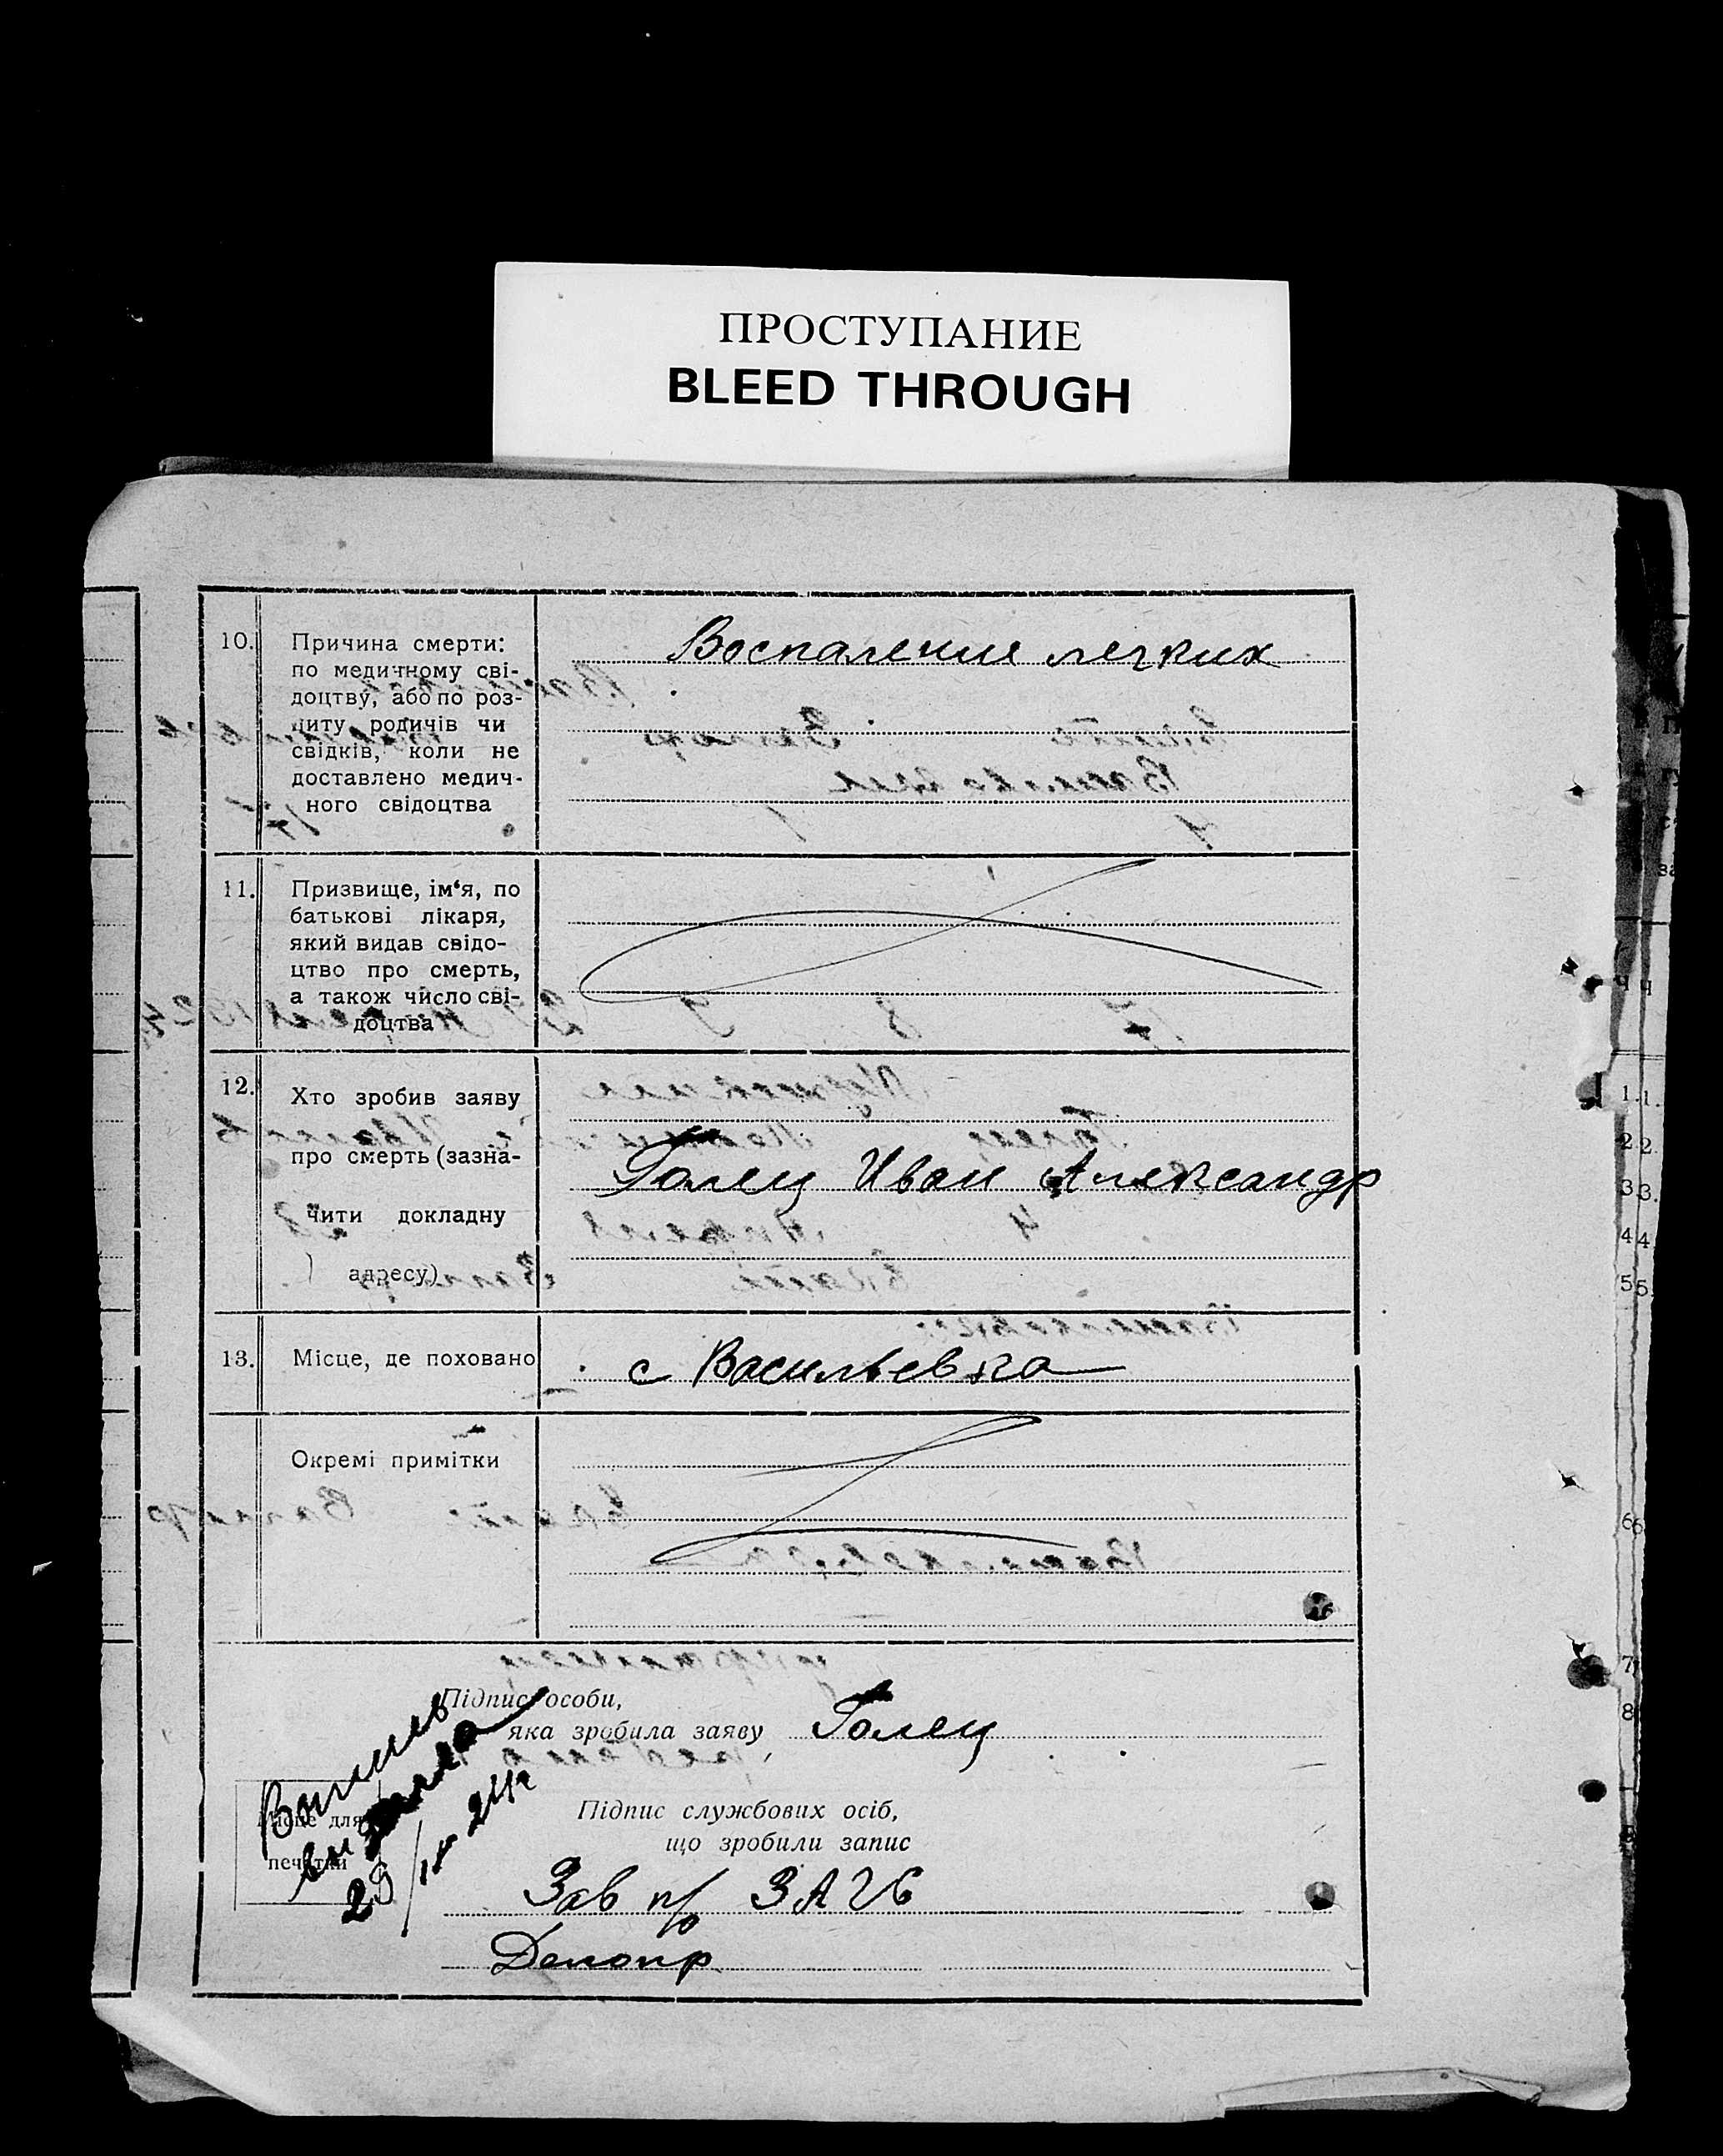 ПРОСТУПАНИЕ
BLEED THROUGH
10. Причина смерти:
по медичному сві-
доцтву, або по роз-
питу родичів чи
свідків, коли не
доставлено медич-
ного свідоцтва
Воспаление легких
11. Призвище, ім‘я, по
батькові лікаря,
який видав свідо-
цтво про смерть,
а також число сві-
доцтва
12. Хто зробив заяву
про смерть (зазна-
чити докладну
адресу)
Голец Иван Александр
13. Місце, де поховано
с Васильевка
Окремі примітки
Підпис особи,
яка зробила заяву Голец
Місце для
печатки
29/IV 24 г
Підпис службових осіб,
що зробили запис
Зав п/о ЗАГС
Делопр